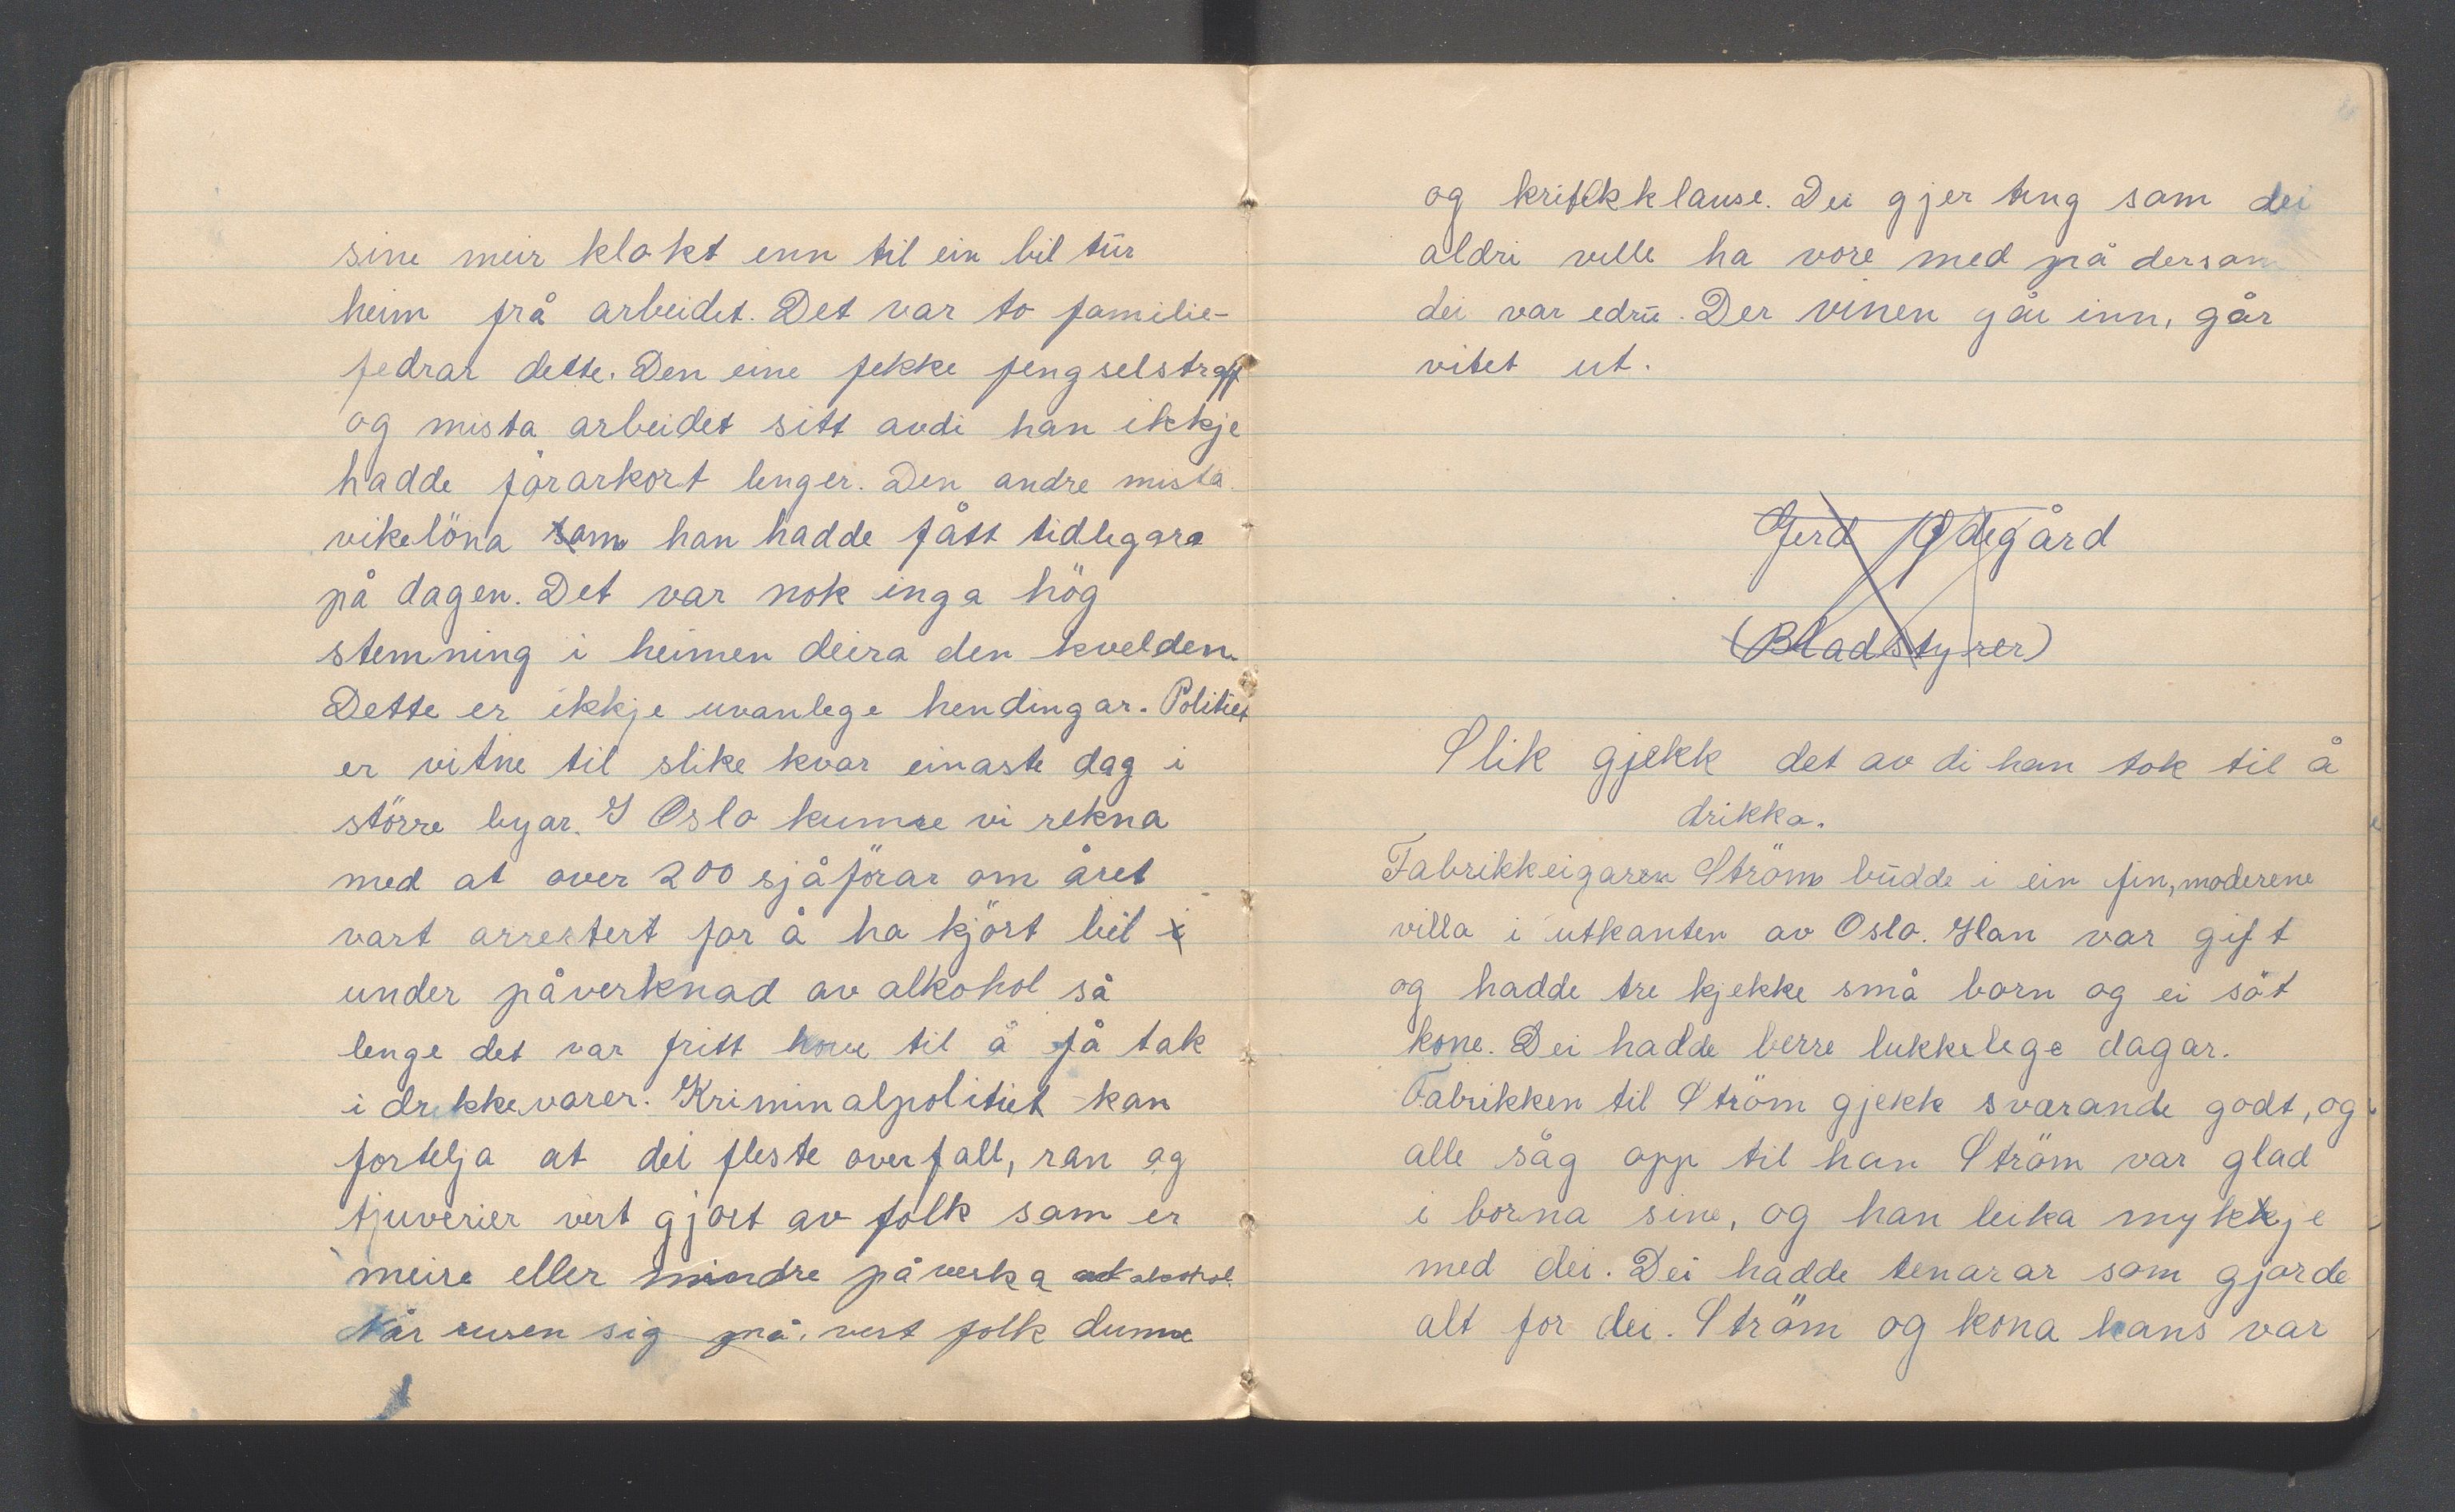 sine meir klokt enn til ein bil tur
heim frå arbeidet. Det var to familie-
fedrar dette. Den eine fekke fengselstraff
og mista arbeidet sitt avdi han ikkje
hadde førarkort lenger. Den andre mista
vikelöna som han hadde fått tidlegara
på dagen. Det var nok inga hög
stemning i heimen deira den kvelden.
Dette er ikkje uvanlege hendingar. Politiet
er vitne til slike kvar einaste dag i
större byar. I Oslo kunne vi rekna
med at over 200 sjåförar om året
vart arrestert for å ha kjört bil
under påverknad av alkohol så
lenge det var fritt höve til å få tak
i drikkevarer. Kriminalpolitiet kan
fortelja at dei fleste overfall, ran og
tjuverier vert gjort av folk som er
meire eller mindre påverka av alkohol.
Når rusen sig på, vert folk dumme
og kritikklause. Dei gjer ting som dei
aldri ville ha vore med på dersom
dei var edru. Der vinen går inn, går
vitet ut.
Gerd Ødegård
(Bladstyrer)
Slik gjekk det av di han tok til å
drikka.
Fabrikkeigaren Ström budde i ein fin, moderene
villa i utkanten av Oslo. Han var gift
og hadde tre kjekke små born og ei söt
kone. Dei hadde berre lukkelege dagar.
Fabrikken til Ström gjekk sværande godt, og
alle såg opp til han Ström var glad
i borna sine, og han leika mykkje
med dei. Dei hadde tenarar som gjorde
alt for dei. Ström og kona hans var